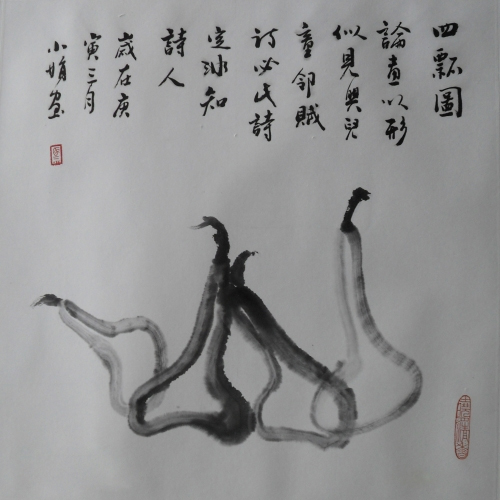 四瓢圖
論畫以形
似見與兒
童鄰賦
詩必此詩
定非知
詩人
歲在庚
寅三月
小娟畫